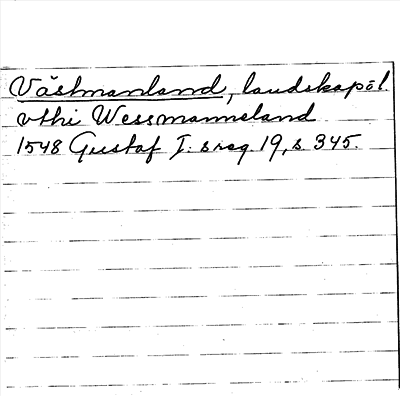 Västmanland, landskapsl.
vthi Wessmanneland
1548 Gustaf I:s reg. 19, s. 345.